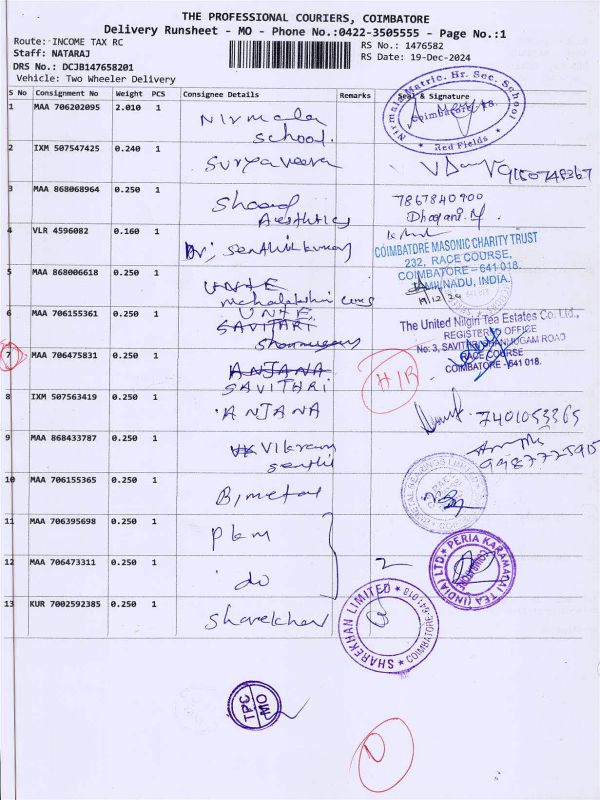 THE PROFESSIONAL COURIERS, COIMBATORE
Delivery Runsheet - MO - Phone No.:0422-3505555 - Page No.:1
Route: INCOME TAX RC
RS No.: 1476582
Staff: NATARAJ
RS Date: 19-Dec-2024
DRS No.: DCJB147658201
Vehicle: Two Wheeler Delivery
S No Consignment No Weight PCS Consignee Details Remarks Seal & Signature
1 MAA 706202095 2.010 1 Nirmala school.
Nirmala Matric. Hr. Sec. School
Coimbatore - 18.
* Red Fields *
2 IXM 507547425 0.240 1 Suryaveera
3 MAA 868068964 0.250 1 Shood Aesthetics
7867840900
Dhagani.M
4 VLR 4596082 0.160 1 Dr, Senthilkumar
COIMBATORE MASONIC CHARITY TRUST
232, RACE COURSE,
COIMBATORE - 641 018.
TAMILNADU, INDIA.
5 MAA 868006618 0.250 1 UNTE
mahalakshmi
19/12/24
6 MAA 706155361 0.250 1 UNTE
SAVITARI
Shanmugam
The United Nilgiri Tea Estates Co. Ltd.,
REGISTERED OFFICE
No: 3, SAVITRI SHANMUGAM ROAD
RACE COURSE
COIMBATORE - 641 018.
7 MAA 706475831 0.250 1 ANJANA
SAVITHRI
HIR
8 IXM 507563419 0.250 1 ANJANA
7401053365
9 MAA 868433787 0.250 1 Vikram
senthil
10 MAA 706155365 0.250 1 Bimetal
11 MAA 706395698 0.250 1 pkm
12 MAA 706473311 0.250 1 do
2
PERIA KARAMALAI TEA (INDIA) LTD.
COIMBATORE
13 KUR 7002592385 0.250 1 Sharekhan
SHAREKHAN LIMITED
COIMBATORE-641018
TPC
MO